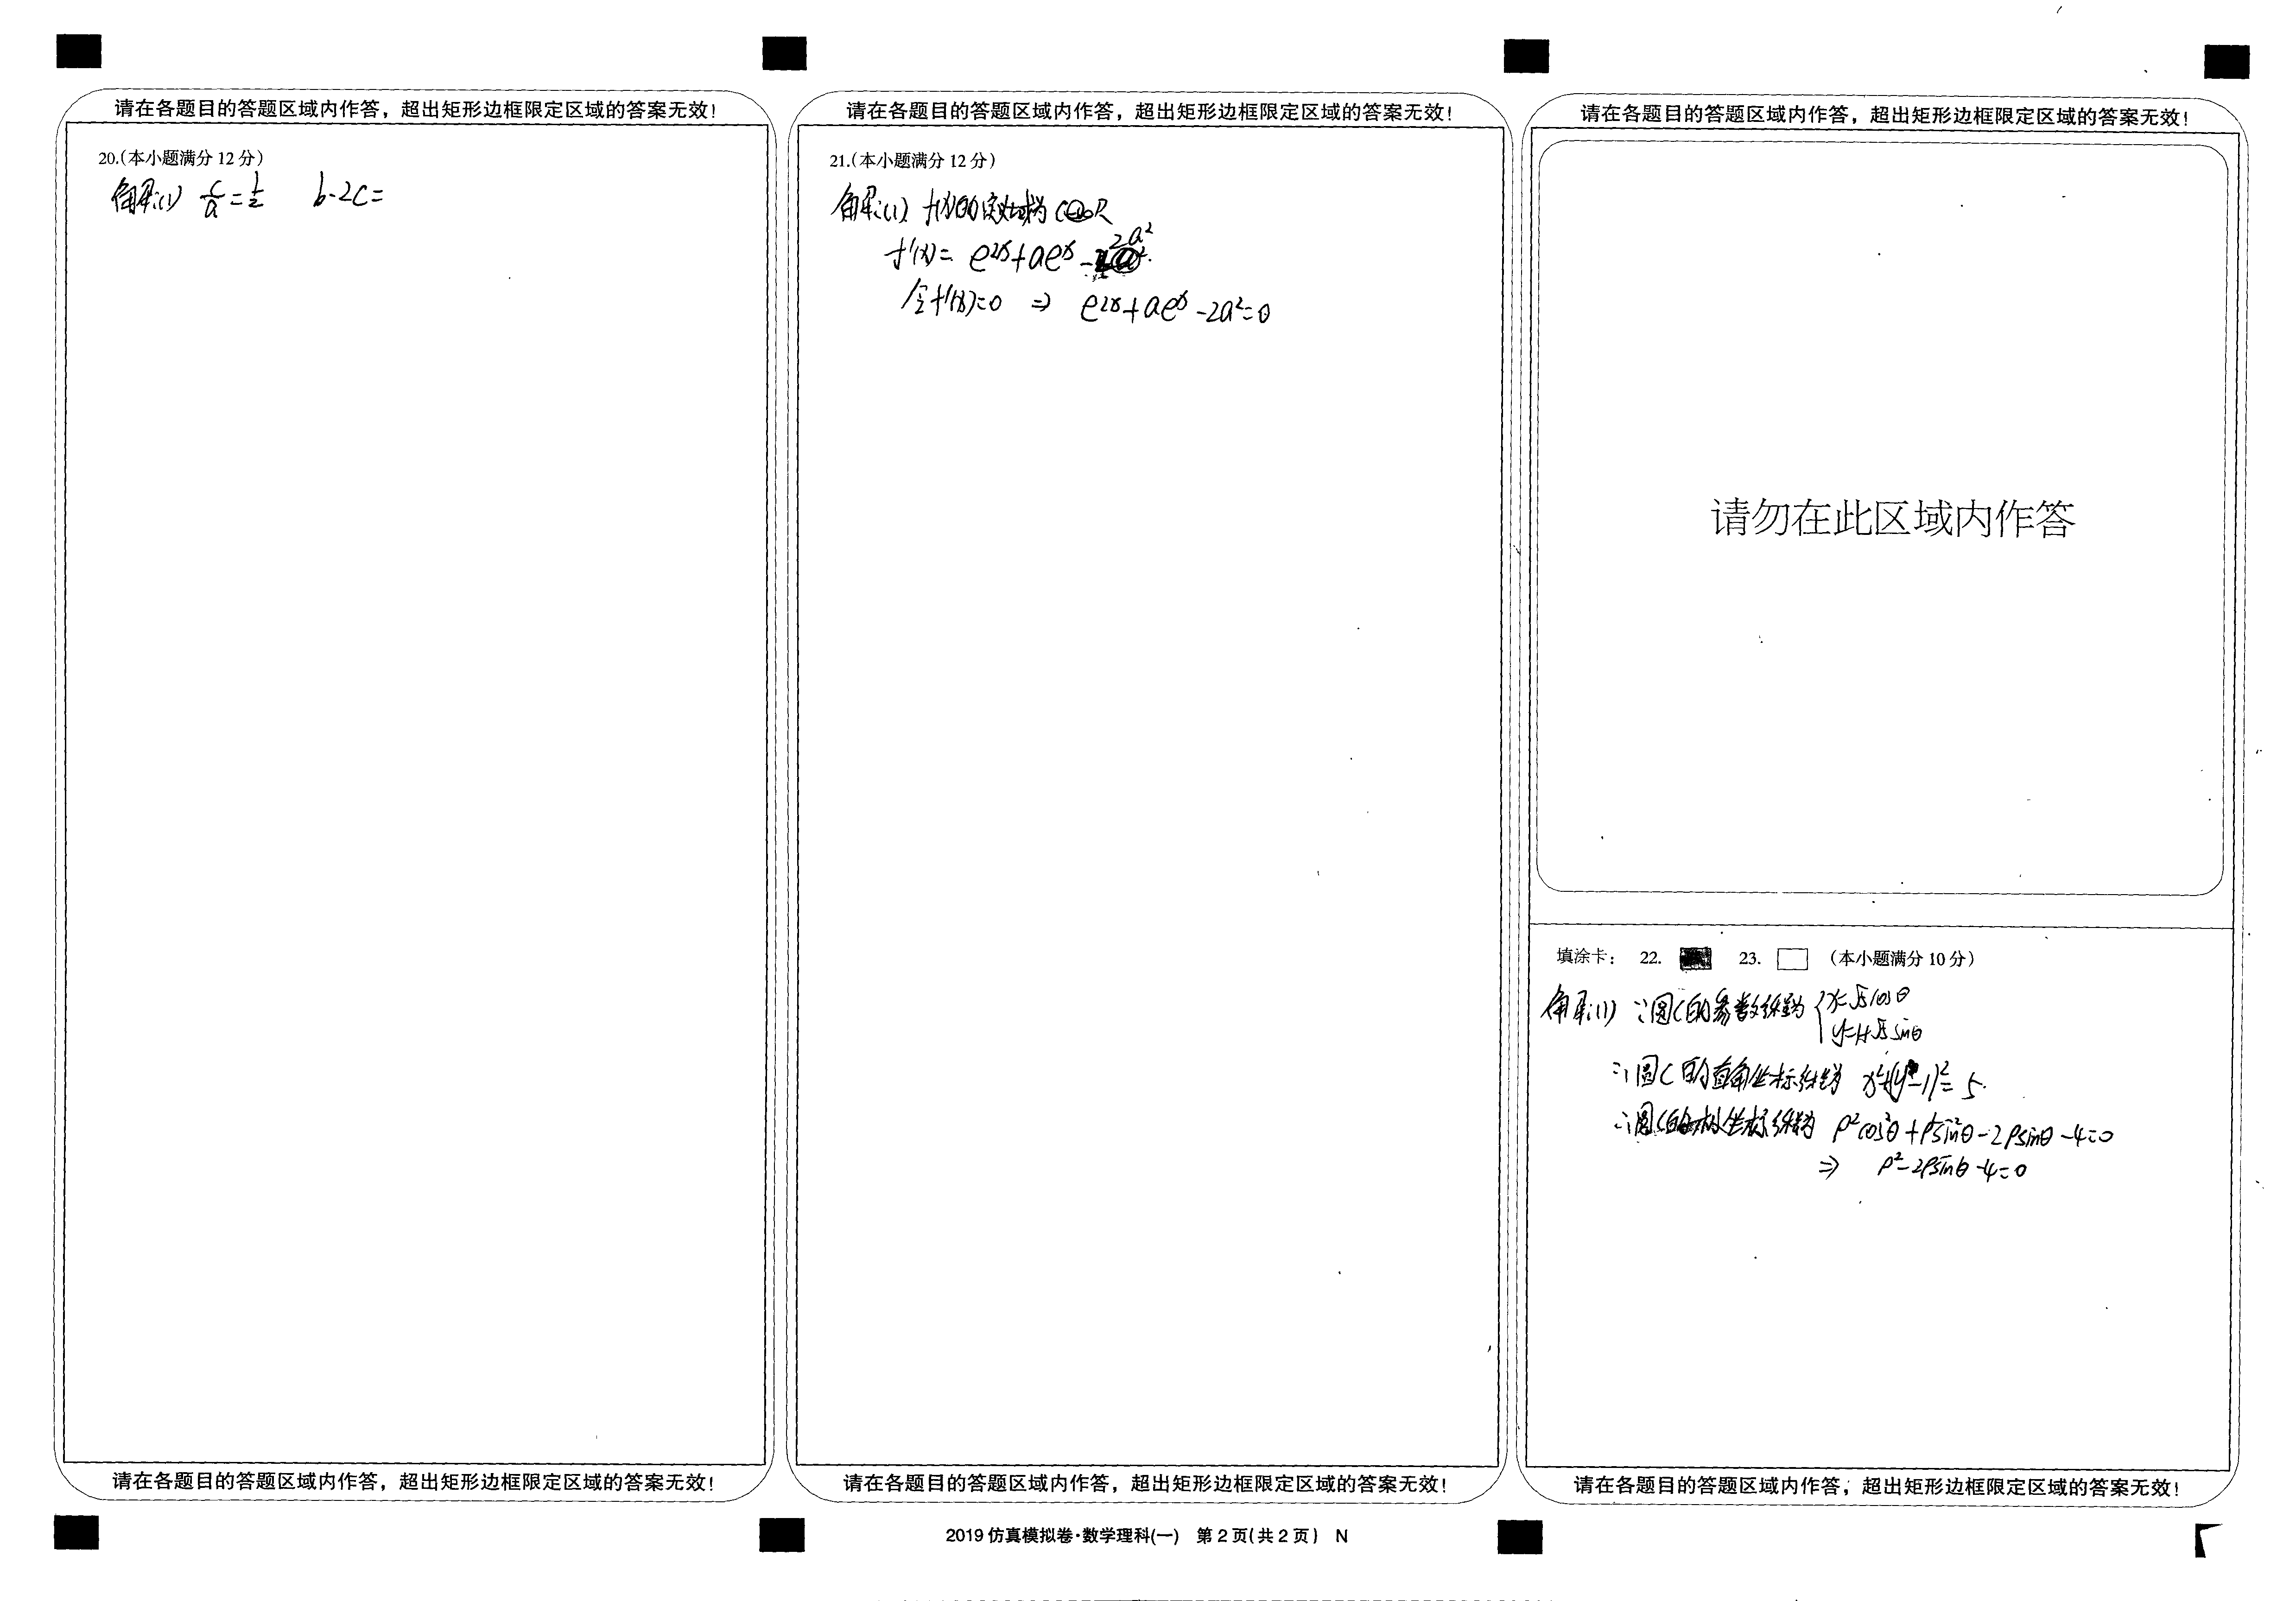 请在各题目的答题区域内作答，超出矩形边框限定区域的答案无效！
20.(本小题满分12分)
解:(1) c/a=1/2 b-2c=
请在各题目的答题区域内作答，超出矩形边框限定区域的答案无效！
请在各题目的答题区域内作答，超出矩形边框限定区域的答案无效！
21.(本小题满分12分)
解:(1) f(x)的定义域为 R
f'(x)= e^{2x}+ae^x-2a²
令f'(x)=0 ⇒ e^{2x}+ae^x-2a²=0
请在各题目的答题区域内作答，超出矩形边框限定区域的答案无效！
请在各题目的答题区域内作答，超出矩形边框限定区域的答案无效！
请勿在此区域内作答
填涂卡： 22. 23. （本小题满分10分）
解:(1) ∵圆C的参数方程为 {x=√5cosθ
y=1+√5sinθ
∴圆C的直角坐标方程为 x²+(y-1)²=5.
∴圆C的极坐标方程为 ρ²cos²θ+ρ²sin²θ-2ρsinθ-4=0
⇒ ρ²-2ρsinθ-4=0
请在各题目的答题区域内作答，超出矩形边框限定区域的答案无效！
2019仿真模拟卷·数学理科(一) 第2页(共2页) N